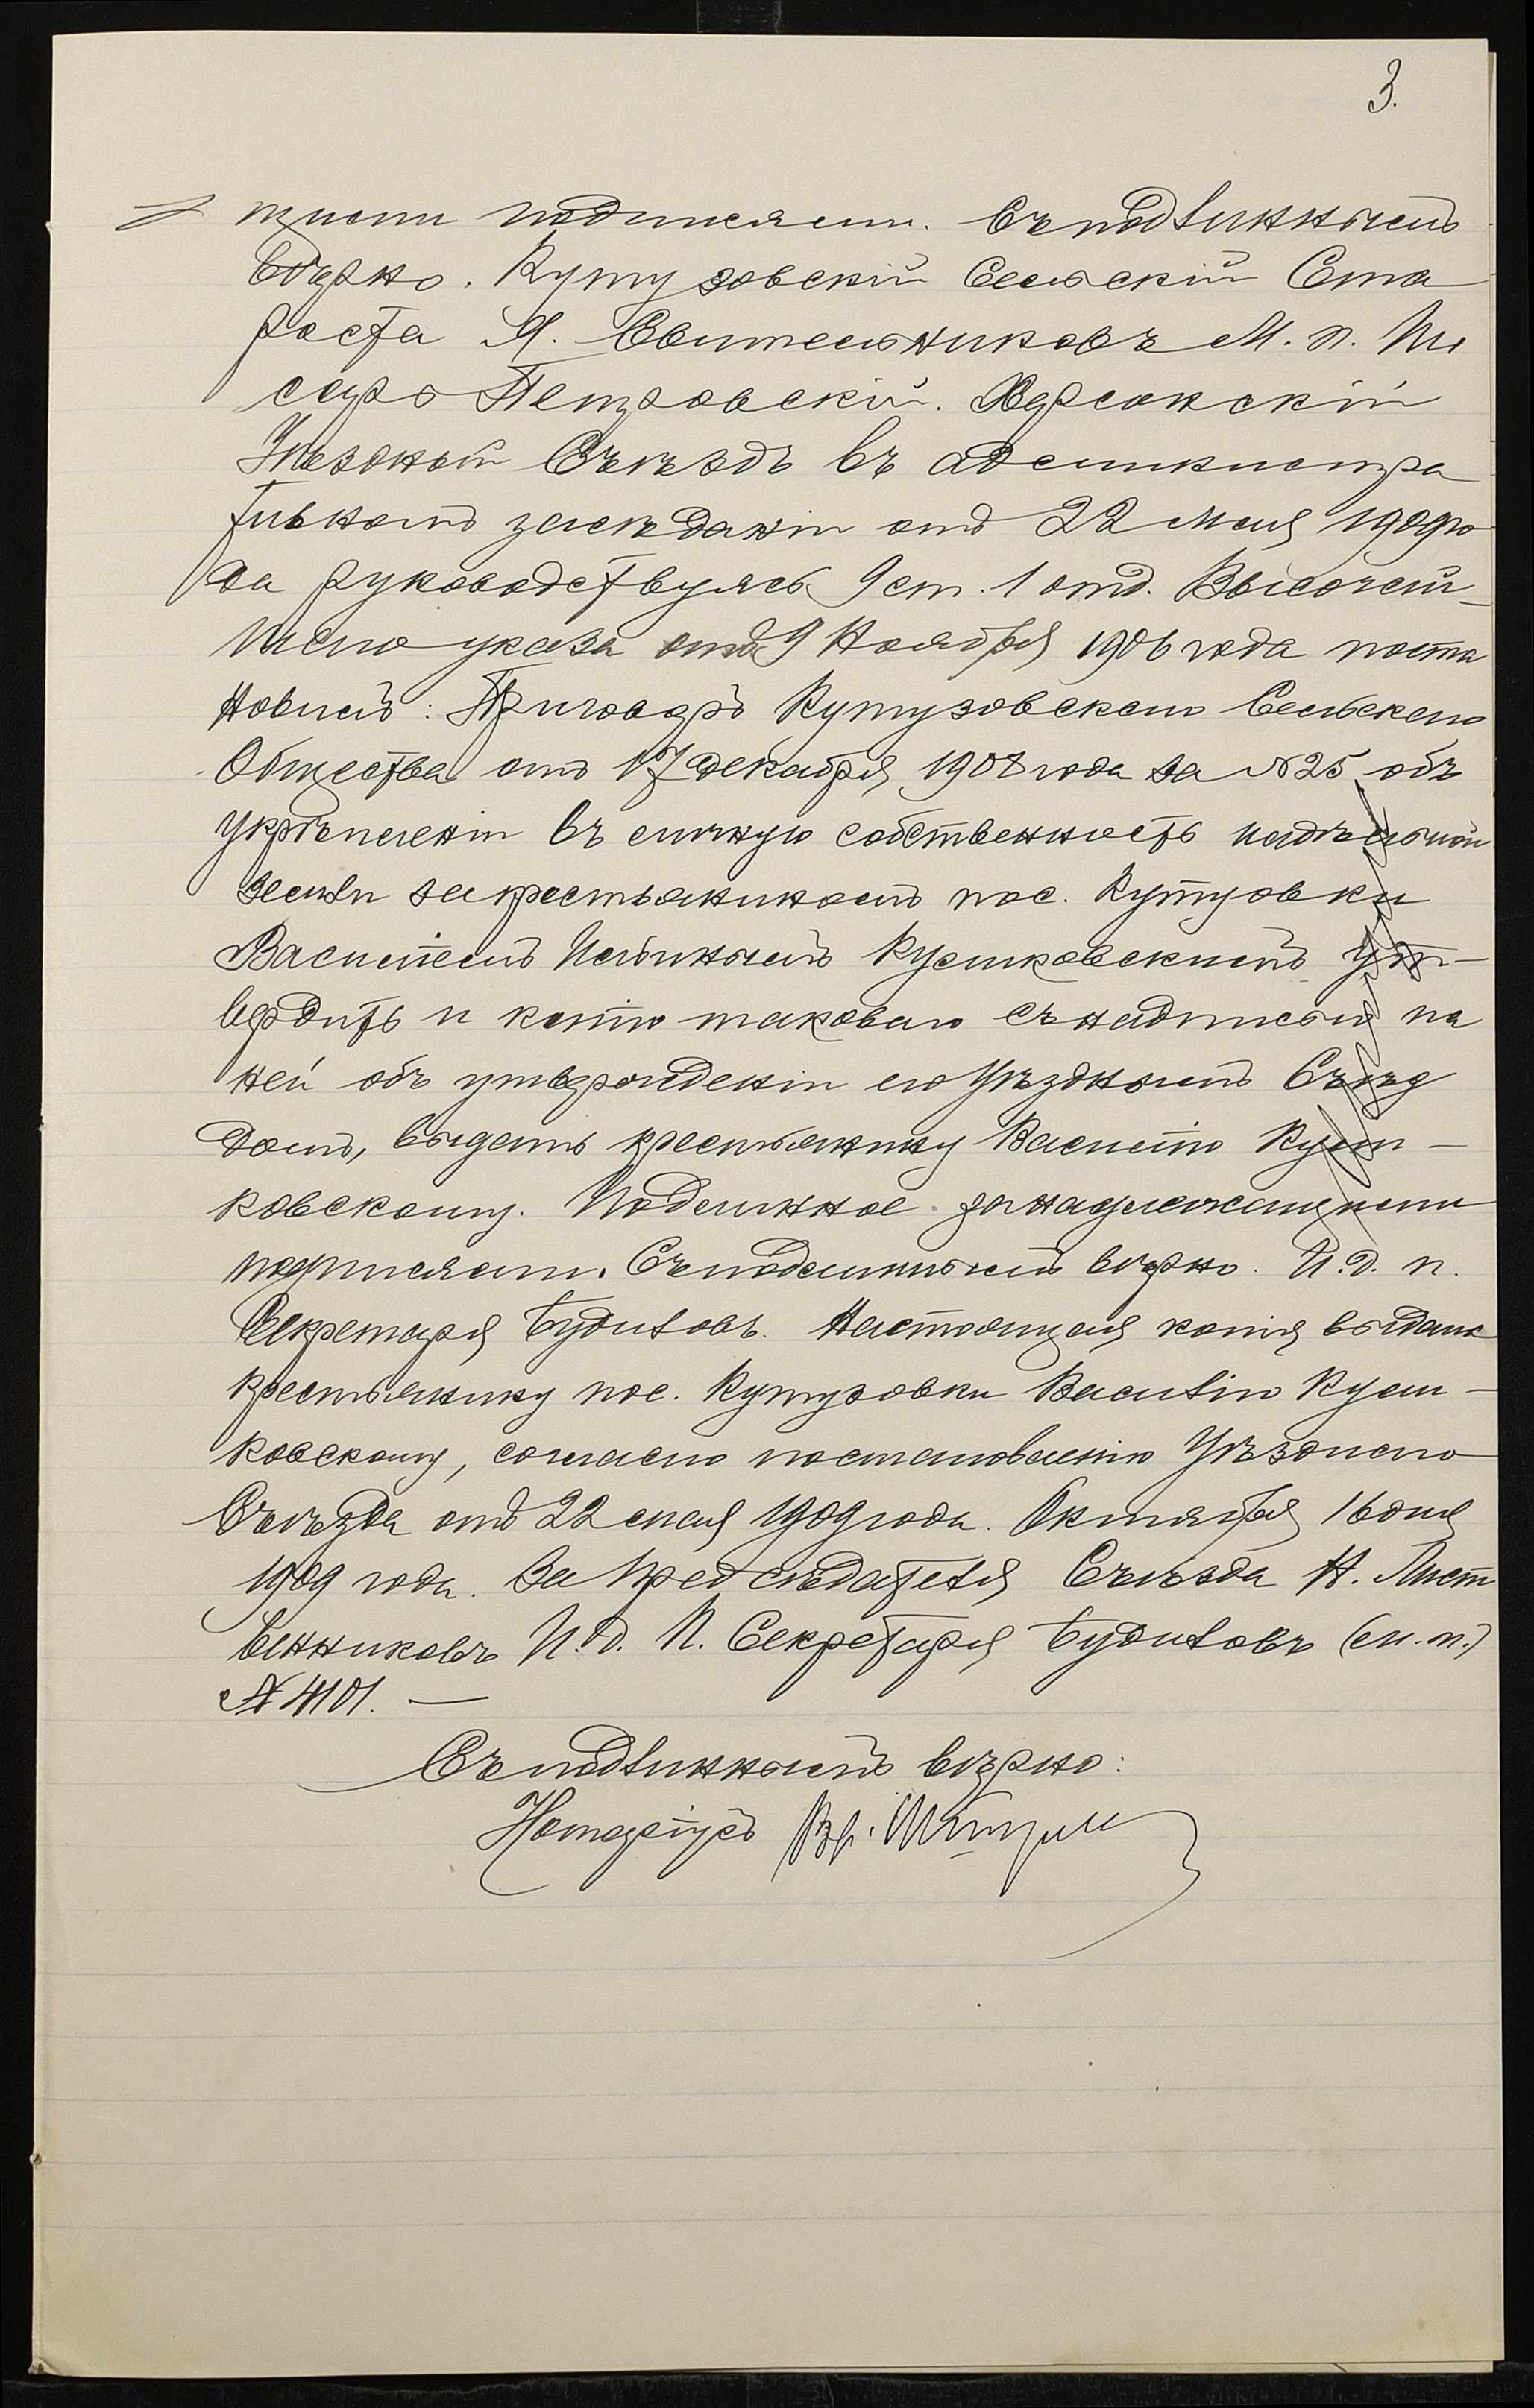 3.
щими подписями. Съ подлиннымъ
вѣрно. Кутузовскій Сельскій Ста
роста Я. Свительниковъ М. п. Пи
сарь Петровскій. Херсонскій
Уѣздный Съѣздъ въ администра
тивномъ засѣданіи отъ 22 Мая 1909 го
да руководствуясь 9 ст. 1 отд. Высочай-
шаго указа отъ 9 Ноября 1906 года поста
новилъ: Приговоръ Кутузовскаго Сельскаго
Общества отъ 17 декабря 1908 года за № 25 объ
укрѣпленіи въ личную собственность надѣльной
земли за крестьяниномъ пос. Кутузовки
Василіемъ Ильинымъ Куликовскимъ ут-
вердить и копію таковаго съ надписью на
ней объ утвержденіи его Уѣзднымъ Съѣз
домъ, выдать крестьянину Василію Кули-
ковскому. Подлинное за надлежащими
подписями. Съ подлиннымъ вѣрно. И. д. п.
Секретаря Будиловъ. Настоящая копія выдана
крестьянину пос. Кутузовки Василію Кули-
ковскому, согласно постановленію Уѣзднаго
Съѣзда отъ 22 мая 1909 года. Октября 16 дня
1909 года. За Предсѣдателя Съѣзда Н. Лист
венниковъ И. д. П. Секретаря Будиловъ (м. п.)
№ 4101. —
Съ подлиннымъ вѣрно:
Нотаріусъ